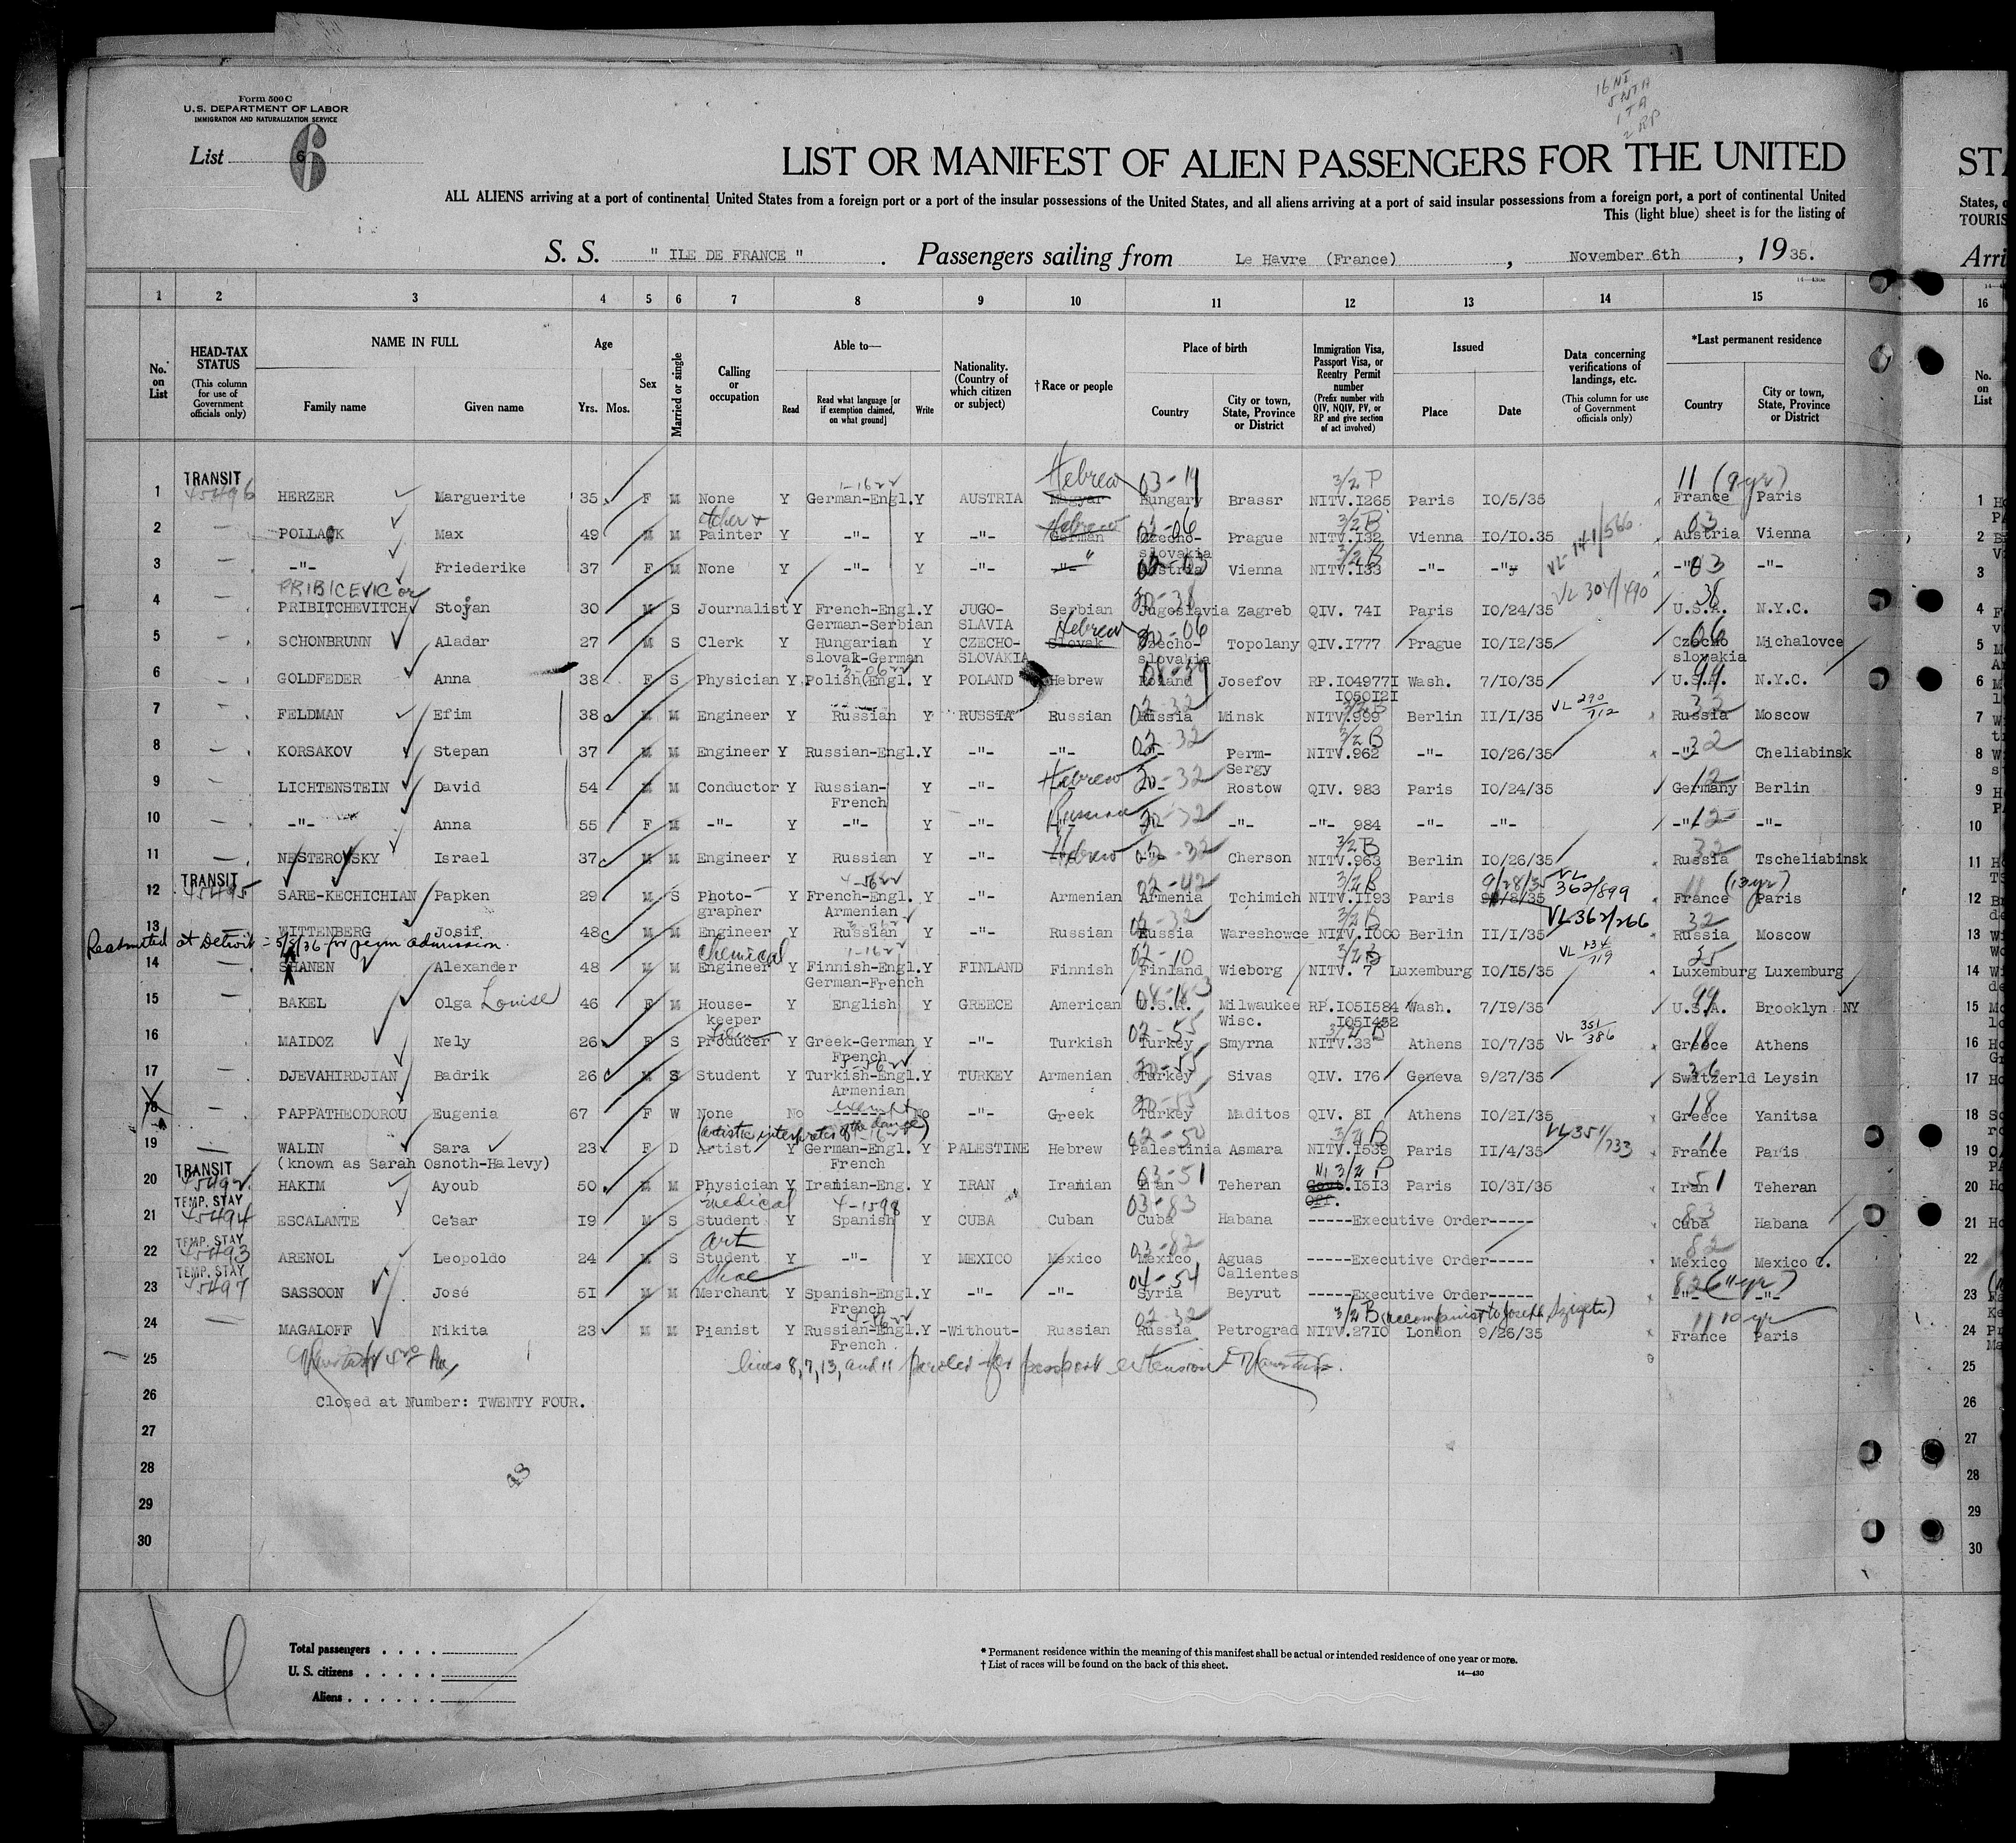 16 NI
5 NTA
1 TA
2 RP
Form 500 C
U.S. DEPARTMENT OF LABOR
IMMIGRATION AND NATURALIZATION SERVICE
List 6 6
LIST OR MANIFEST OF ALIEN PASSENGERS FOR THE UNITED
ALL ALIENS arriving at a port of continental United States from a foreign port or a port of the insular possessions of the United States, and all aliens arriving at a port of said insular possessions from a foreign port, a port of continental United
This (light blue) sheet is for the listing of
S. S. " ILE DE FRANCE ". Passengers sailing from Le Havre (France), November 6th, 1935.
1 2 3 4 5 6 7 8 9 10 11 12 13 14 15
No. on List
HEAD-TAX STATUS (This column for use of Government officials only)
NAME IN FULL Family name Given name
Age Yrs. Mos.
Sex
Married or single
Calling or occupation
Able to— Read Read what language [or if exemption claimed, on what ground] Write
Nationality. (Country of which citizen or subject)
† Race or people
Place of birth Country City or town, State, Province or District
Immigration Visa, Passport Visa, or Reentry Permit number (Prefix number with QIV, NQIV, PV, or RP and give section of act involved)
Issued Place Date
Data concerning verifications of landings, etc. (This column for use of Government officials only)
*Last permanent residence Country City or town, State, Province or District
TRANSIT 45496 Hebrew 03-19 3/2 P 11 (9 yr)
1 HERZER Marguerite 35 F M None Y German-Engl. Y AUSTRIA Magyar Hungary Brassr NITV.I265 Paris IO/5/35 France Paris
2 POLLACK Max 49 M M Painter Y -"- Y -"- Hebrew German Czecho-slovakia Prague NITV.I32 Vienna IO/IO.35 VL-141/566 Austria Vienna
3 -"- Friederike 37 F M None Y -"- Y -"- -"- Austria Vienna NITV.I33 -"- -"- -"- -"-
PRIBICEVIC or VL 304/490
4 PRIBITCHEVITCH Stoyan 30 M S Journalist Y French-Engl. German-Serbian Y JUGO-SLAVIA Serbian Jugoslavia Zagreb QIV. 74I Paris IO/24/35 U.S.A. N.Y.C.
5 SCHONBRUNN Aladar 27 M S Clerk Y Hungarian slovak-German Y CZECHO-SLOVAKIA Hebrew Slovak Czecho-slovakia Topolany QIV.I777 Prague IO/12/35 Czecho slovakia Michalovce
6 GOLDFEDER Anna 38 F S Physician Y Polish Engl. Y POLAND Hebrew Poland Josefov RP.IO4977I IO50I2I Wash. 7/IO/35 U.S.A. N.Y.C.
7 FELDMAN Efim 38 M M Engineer Y Russian Y RUSSIA Russian Russia Minsk NITV.999 Berlin II/I/35 VL 290/712 Russia Moscow
8 KORSAKOV Stepan 37 M M Engineer Y Russian-Engl. Y -"- -"- -"- Perm-Sergy NITV.962 -"- IO/26/35 -"- Cheliabinsk
9 LICHTENSTEIN David 54 M M Conductor Y Russian-French Y -"- Hebrew -"- Rostow QIV. 983 Paris IO/24/35 Germany Berlin
10 -"- Anna 55 F M -"- Y -"- Y -"- Russian -"- -"- -"- 984 -"- -"- -"- -"-
11 NESTEROVSKY Israel 37 M M Engineer Y Russian Y -"- Hebrew -"- Cherson NITV.963 Berlin IO/26/35 Russia Tscheliabinsk
TRANSIT 45495 02-42 3/2 B 9/28/35 VL 362/899 (13 yr)
12 SARE-KECHICHIAN Papken 29 M S Photo-grapher Y French-Engl. Armenian Y -"- Armenian Armenia Tchimich NITV.II93 Paris France Paris
13 WITTENBERG Josif 48 M M Engineer Y Russian Y -"- Russian Russia Wareshowce NITV.IO00 Berlin II/I/35 VL 362/266 Russia Moscow
Readmitted at Detroit - 5/8/36 for perm admission.
14 SHANEN Alexander 48 M M Chemical Engineer Y Finnish-Engl. German-French Y FINLAND Finnish Finland Wieborg NITV. 7 Luxemburg IO/I5/35 Luxemburg Luxemburg
15 BAKEL Olga Louise 46 F M House-keeper Y English Y GREECE American U.S.A. Milwaukee Wisc. RP.IO5I584 IO5I452 Wash. 7/I9/35 U.S.A. Brooklyn NY
16 MAIDOZ Nely 26 F S Film Producer Y Greek-German French Y -"- Turkish Turkey Smyrna NITV.33 Athens IO/7/35 VL 351/386 Greece Athens
17 DJEVAHIRDJIAN Badrik 26 M S Student Y Turkish-Engl. Armenian Y TURKEY Armenian Turkey Sivas QIV. I76 Geneva 9/27/35 Switzerld Leysin
18 PAPPATHEODOROU Eugenia 67 F W None No exempt No -"- Greek Turkey Maditos QIV. 8I Athens IO/2I/35 Greece Yanitsa
(artistic interpreter of the dance)
19 WALIN Sara 23 F D Artist Y German-Engl. French Y PALESTINE Hebrew Palestinia Asmara NITV.I539 Paris II/4/35 VL 351/733 France Paris
(known as Sarah Osnoth-Halevy)
TRANSIT 45492
20 HAKIM Ayoub 50 M M Physician Y Iranian-Eng. Y IRAN Iranian Iran Teheran I5I3 Paris IO/3I/35 Iran Teheran
TEMP. STAY 45494
21 ESCALANTE Ce'sar I9 M S medical Student Y Spanish Y CUBA Cuban Cuba Habana -----Executive Order----- Cuba Habana
TEMP. STAY 45493
22 ARENOL Leopoldo 24 M S art Student Y -"- Y MEXICO Mexico Mexico Aguas Calientes -----Executive Order----- Mexico Mexico C.
TEMP. STAY 45497
23 SASSOON José 5I M M Shoe Merchant Y Spanish-Engl. French Y -"- -"- Syria Beyrut -----Executive Order----- -"- -"-
3/2 B (accompanist to Joseph Szigeti) 10 yr
24 MAGALOFF Nikita 23 M M Pianist Y Russian-Engl. French Y -Without- Russian Russia Petrograd NITV.27IO London 9/26/35 France Paris
25 lines 8, 7, 13, and 11 paroled for passport extension
26 Closed at Number: TWENTY FOUR.
27
28
29
30
Total passengers
U. S. citizens
Aliens
* Permanent residence within the meaning of this manifest shall be actual or intended residence of one year or more.
† List of races will be found on the back of this sheet.
14—430